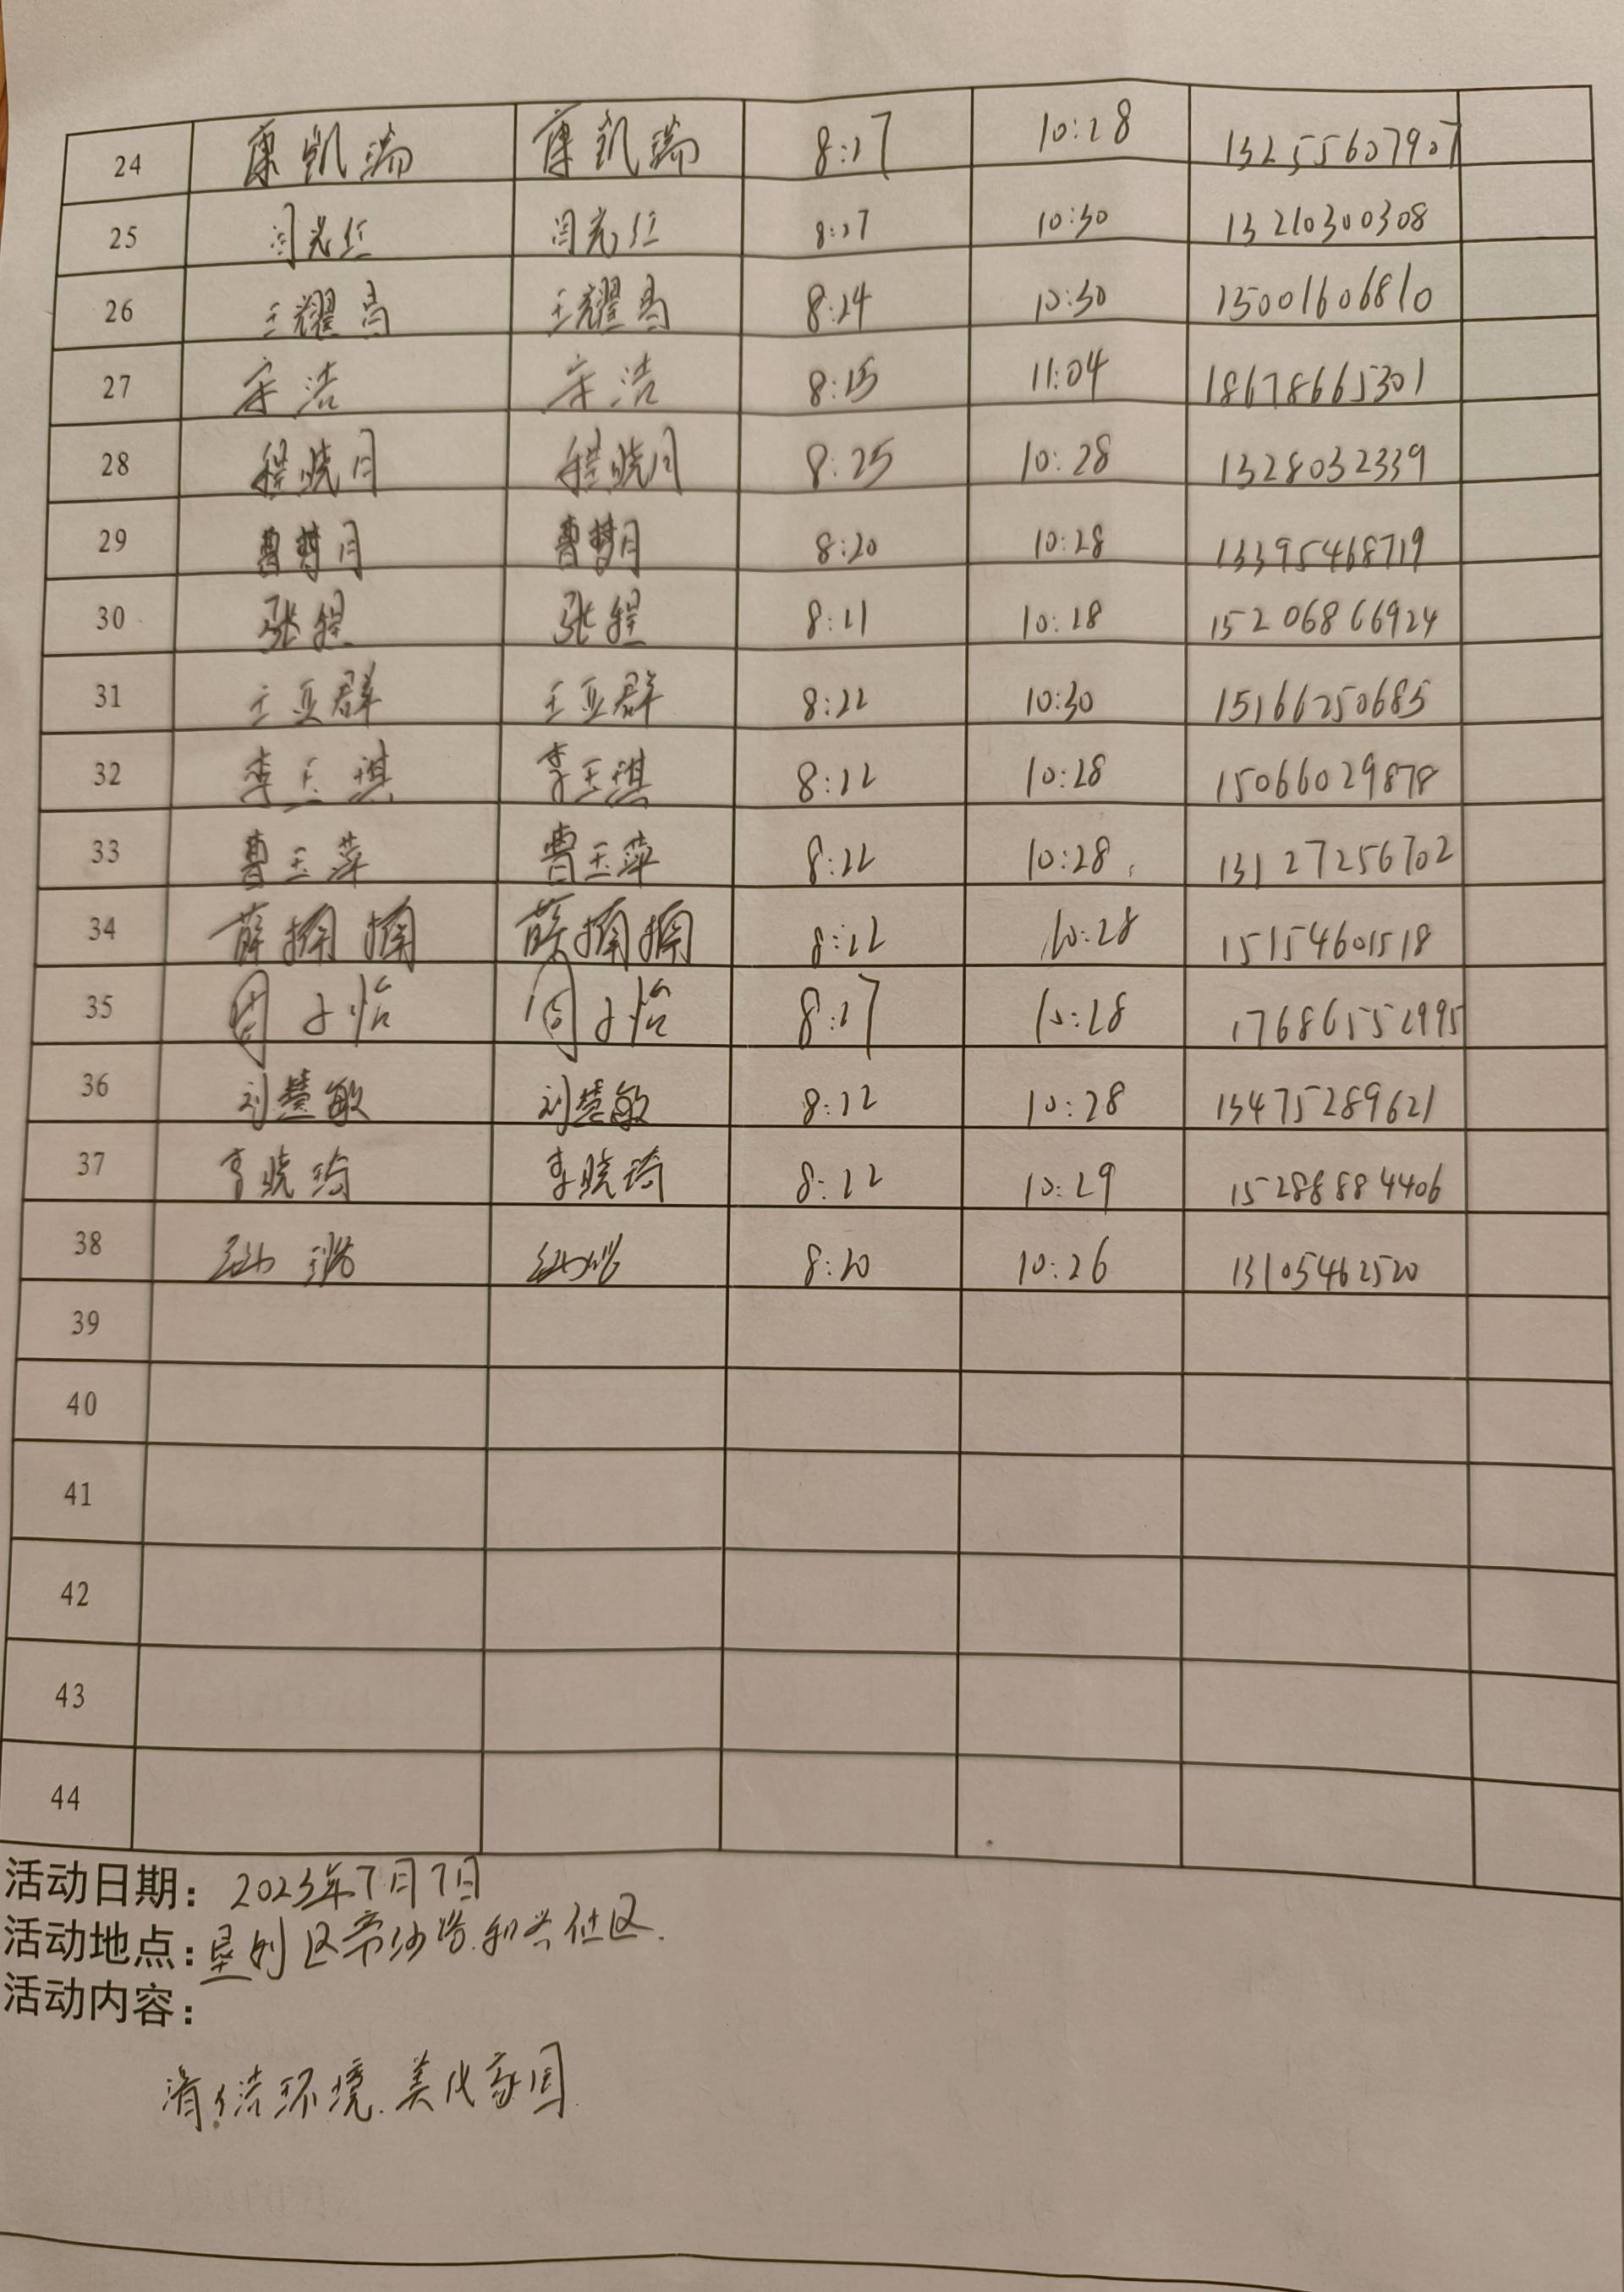 24 康凯瑞 康凯瑞 8:27 10:28 13255607907
25 闫光红 闫光红 8:27 10:30 13210300308
26 王耀 王耀 8:24 10:30 15001606810
27 宋浩 宋浩 8:25 11:04 18678665301
28 程晓月 程晓月 8:25 10:28 1328032339
29 曹梦月 曹梦月 8:20 10:28 13395468719
30 张程 张程 8:21 10:28 15206866924
31 王亚群 王亚群 8:22 10:30 15166250685
32 李玉琪 李玉琪 8:22 10:28 15066029878
33 曹玉萍 曹玉萍 8:22 10:28 13127256702
34 薛 8:22 10:28 15154601518
35 周子怡 周子怡 8:27 10:28 17686552995
36 刘慧敏 刘慧敏 8:22 10:28 13475289621
37 李晓琦 李晓琦 8:22 10:29 15288884406
38 8:20 10:26 13105462520
39
40
41
42
43
44
活动日期：2023年7月7日
活动地点：垦利区 和兴社区.
活动内容：
清洁环境.美化家园.